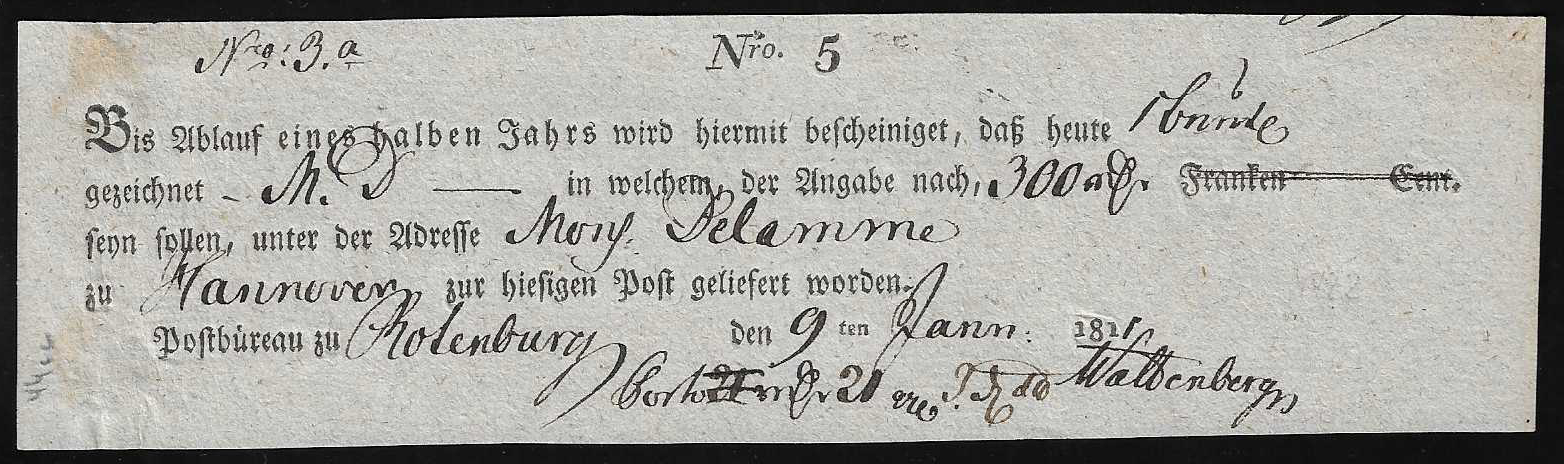 Nro: 3.a Nro. 5
Bis Ablauf eines halben Jahrs wird hiermit bescheiniget, daß heute
gezeichnet M. D in welchem, der Angabe nach, 300 Franken Cent.
seyn sollen, unter der Adresse Mons. Delamme
zu Hannover zur hiesigen Post geliefert worden.
Postbüreau zu Rotenburg den 9 ten Jann. 1811
21 Waltenberg